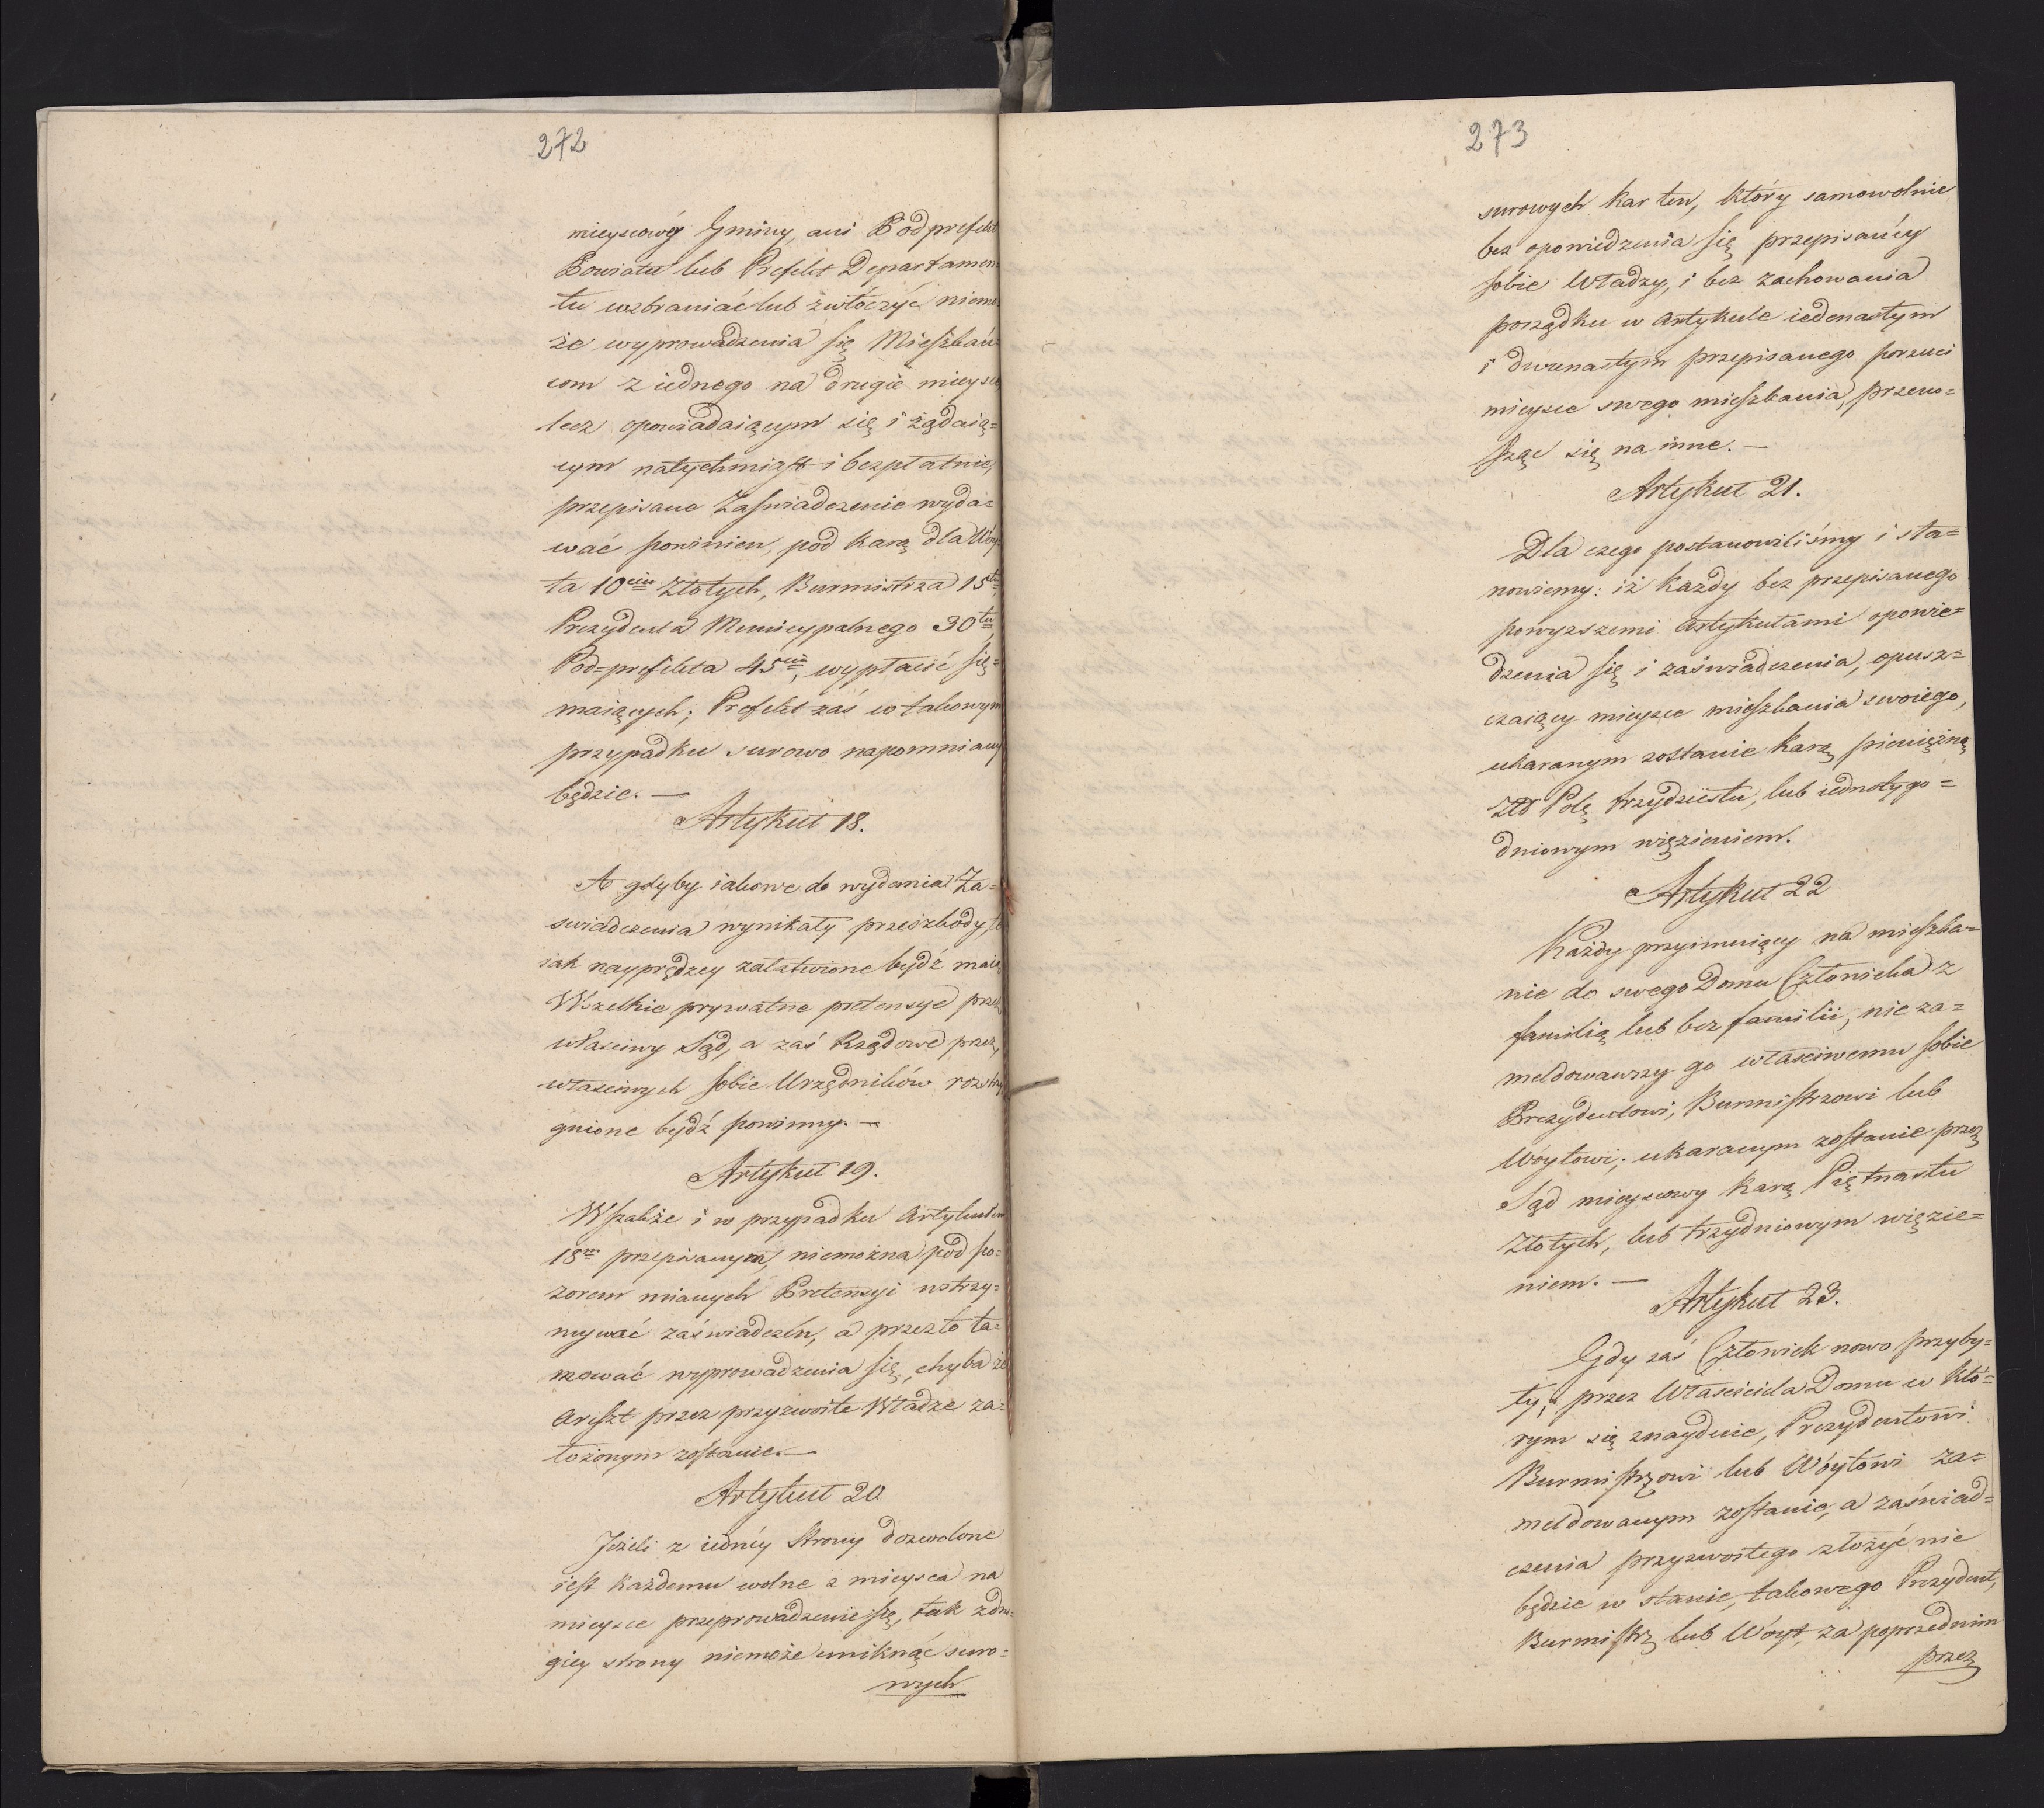 272
mieyscowéy Gminy, ani Podprefekt
Powiatu lub Prefekt Departamen
tu wzbraniać lub zwłóczyć niemo
że wyprowadzenia się Mieszkań=
com z iednego na drugie mieysce
lecz opowiadaiącym się i żądaią=
cym natychmiast i bezpłatnie,
przepisane Zaswiadczenie wyda=
wać powinien, pod karą dla Wóy
ta 10ciu Złotych, Burmistrza 15tu
Prezydenta Municypalnego 30tu
Pod=prefekta 45ciu, wypłacić się=
maiących; Prefekt zaś w takowym
przypadku surowo napomniany
będzie. —
Artykuł 18.
A gdyby iakowe do wydania Za=
swiadczenia wynikały przeszkody, to
iak nayprędzey załatwione bydź maią
Wszelkie prywatne pretensye przez
właściwy Sąd, a zaś Rządowe przez
właściwych sobie Urzędników rozstrzy
gnione bydź powinny. —
Artykuł 19.
Wszakże i w przypadku Artykułem
18m przepisanym, niemożna pod po=
zorem mianych Pretensyi wstrzy=
mywać zaświadczeń, a przezto ta=
mować wyprowadzenia się, chyba że
Areszt przez przyzwoite Władze za=
łożonym zostanie. —
Artykuł 20
Jeżeli z iednéy Strony dozwolone
iest każdemu wolne z mieysca na
mieysce przeprowadzenie się, tak z dru=
giey strony niemoże uniknąć suro=
wych
273
surowych kar ten, który samowolnie
bez opowiedzenia się przepisanéy
sobie Władzy, i bez zachowania
porządku w Artykule iedenastym
i dwunastym przepisanego porzuci
mieysce swego mieszkania, przeno=
sząc się na inne. —
Artykuł 21.
Dla czego postanowiliśmy i sta=
nowiemy: iż każdy bez przepisanego
powyzszemi Artykułami opowie=
dzenia się i zaświadczenia, opusz=
czaiący mieysce mieszkania swoiego,
ukaranym zostanie karą pieniężną
Zło Polę trzydziestu, lub iednotygo=
dniowym więzieniem.
Artykuł 22
Każdy przyimuiący na mieszka=
nie do swego Domu Człowieka z
familią lub bez familii, nie za=
meldowawszy go właściwemu sobie
Prezydentowi, Burmistrzowi lub
Wóytowi; ukaranym zostanie przez
Sąd mieyscowy karą Piętnastu
Złotych, lub trzydniowym więzie=
niem. —
Artykuł 23.
Gdy zaś Człowiek nowo przyby=
ły, przez Właściciela Domu w któ=
rym się znayduie, Prezydentowi
Burmistrzowi lub Wóytowi za=
meldowanym zostanie, a zaświad=
czenia przyzwoitego złożyć nie
będzie w stanie, takowego Prezydent,
Burmistrz lub Wóyt, za poprzednim
przez